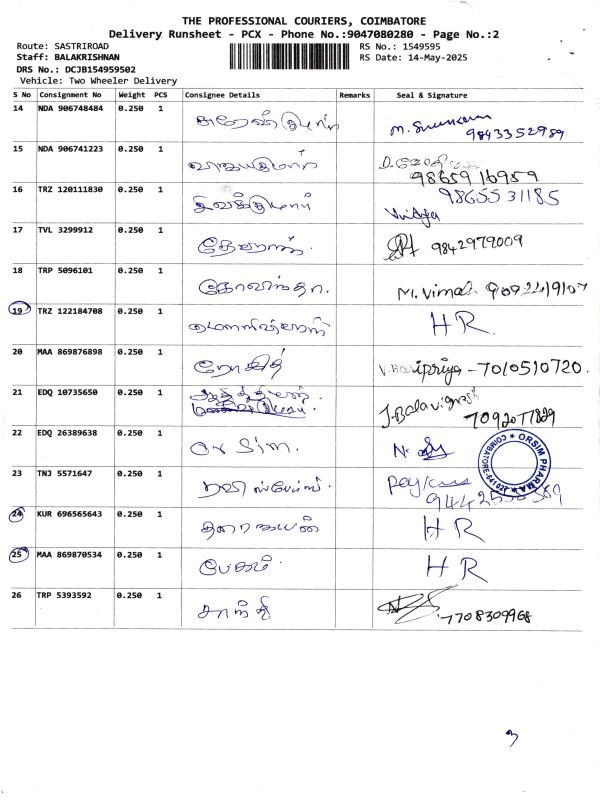 THE PROFESSIONAL COURIERS, COIMBATORE
Delivery Runsheet - PCX - Phone No.:9047080280 - Page No.:2
Route: SASTRIROAD
RS No.: 1549595
Staff: BALAKRISHNAN
RS Date: 14-May-2025
DRS No.: DCJB154959502
Vehicle: Two Wheeler Delivery
S No Consignment No Weight PCS Consignee Details Remarks Seal & Signature
14 NDA 906748484 0.250 1 9843352989
15 NDA 906741223 0.250 1 98659 16959
16 TRZ 120111830 0.250 1 சிவக்குமார் 98655 31185
Vidya
17 TVL 3299912 0.250 1 9842979009
18 TRP 5096101 0.250 1 கோவிந்தா. M. Vimal
19 TRZ 122184708 0.250 1 HR
20 MAA 869876898 0.250 1 ரோகித் V. Haripriya - 7010510720.
21 EDQ 10735650 0.250 1 J. Balavignesh
7092077829
22 EDQ 26389638 0.250 1 Orsim. ORSIM PHARMA COIMBATORE
23 TNJ 5571647 0.250 1 ரவி
24 KUR 696565643 0.250 1 HR
25 MAA 869870534 0.250 1 பேகம் HR
26 TRP 5393592 0.250 1 சாந்தி 7708309968